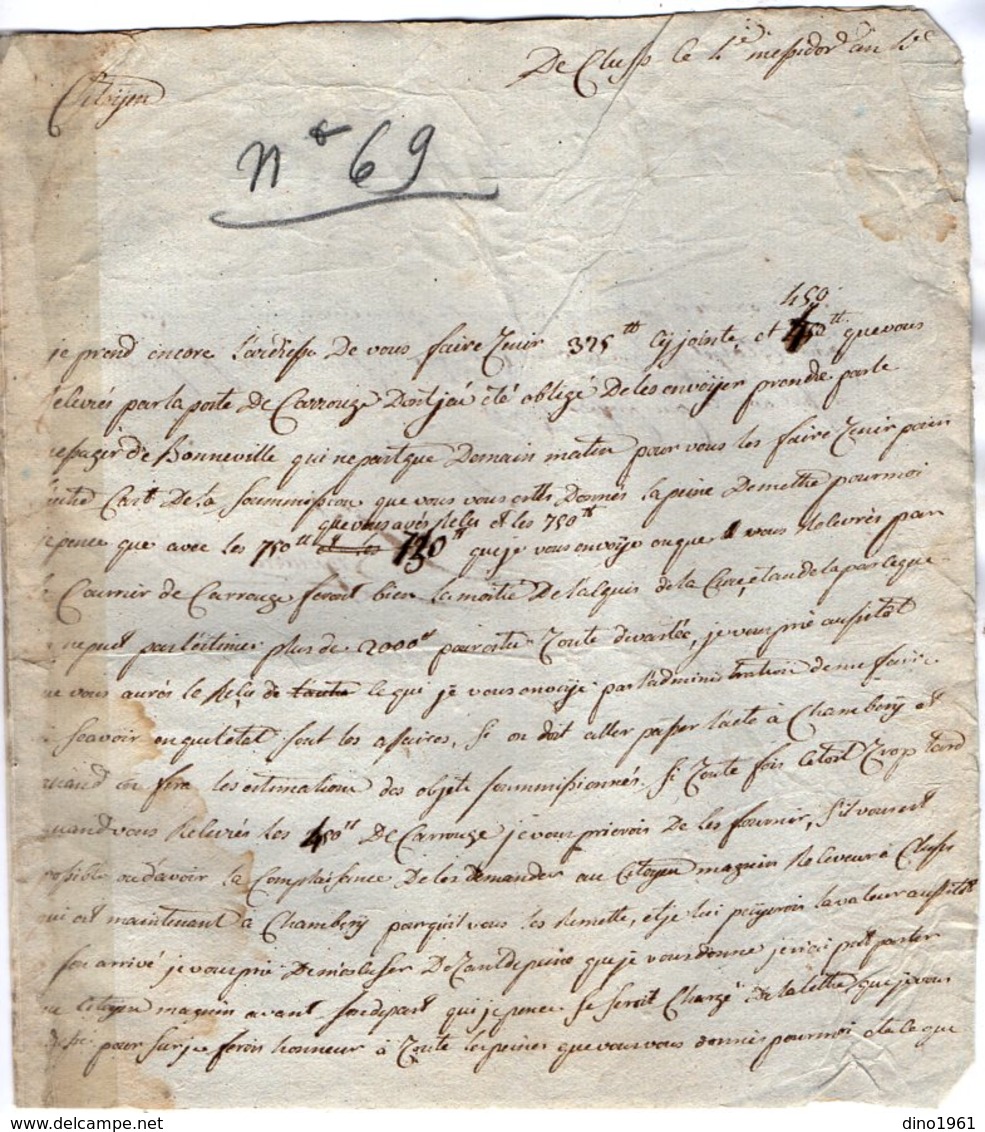 De Cluses le 4e messidor an 4e
Citoyen
N° 69
450
je prend encore l'adresse De vous faire Tenir 375tt Cy jointe et que vous
relevrés par la poste De Carrouge Dont j'ai été obligé De les envoÿer prendre par le
messager De Bonneville qui ne part que Demain matin pour vous les faire Tenir pour
De la Soummission que vous vous ettes Donnés la peine De mettre pour moi
que vous avés Reçu et les 750tt
je pence que avec les 750tt et les que je vous envoÿe ou que vous Relevrés par
le Courrier de Carrouge feront bien la moitié De la Cure, etand De la par
ne peut pas l'estimer plus de 2000tt pour estre Toute devastée, je vous prie aussitôt
que vous aurés le Reçu de ce que je vous envoÿe par l'administration de me faire
Scavoir en quel etat sont les affaires, Si on doit aller passer l'acte à Chamberÿ et
quand on fera les estimations des objets soummissionnés. Si Toute fois C'etoit Trop tard
quand vous Relevriés les 450tt De Carrouge je vous prierois De les fournir, S'il vous est
possible ou d'avoir la Complaisance De les demander au Citoyen magnin Releveur à Cluses
qui est maintenant à Chamberÿ pour qu'il vous les Remette, et je lui peÿerois la valeur aussitôt
son arrivé je vous prie De m'excuser De Tant de peine que je vous donne je n'ai put parler
au Citoyen magnin avant son depart qui je pence Se seroit Chargé De la lettre que je vous
pour sur je ferois honneur à Toute les peines que vous vous donnés pour moi et a ce que
dino1961